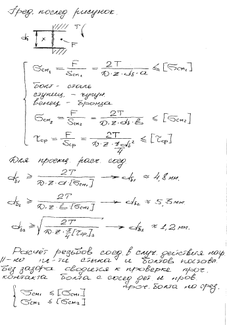 Пред. послед рисунок
d_б
F
F
T
σ_см₁ = F/S_см₁ = 2T/(D·z·d_б·a) ≤ [σ_см₁]
Болт - сталь
ступиц - чугун
венец - бронза
σ_см₂ = F/S_см₂ = 2T/(D·z·d_б·b) ≤ [σ_см₂]
τ_ср = F/S_ср = 2T/(D·z·) ≤ [τ_ср]
Для проект. расч. соед
d_б₁ ≥ 2T/(D·z·a[σ_см₁]) → d_б₁ ≈ 4,8 мм.
d_б₂ ≥ 2T/(D·z·b[σ_см₂]) → d_б₂ ≈ 5,5 мм
d_б₃ ≥ √(2T/(D·z·[τ_ср])) → d_б₃ ≈ 1,2 мм.
Расчёт резьбов соед в случ. действия нагр
стыка и болтов постав.
без зазора сводится к проверке проч.
контакта болта с соед дет и пров
проч. болта по срез.
σ_см₁ ≤ [σ_см₁]
σ_см₂ ≤ [σ_см₂]